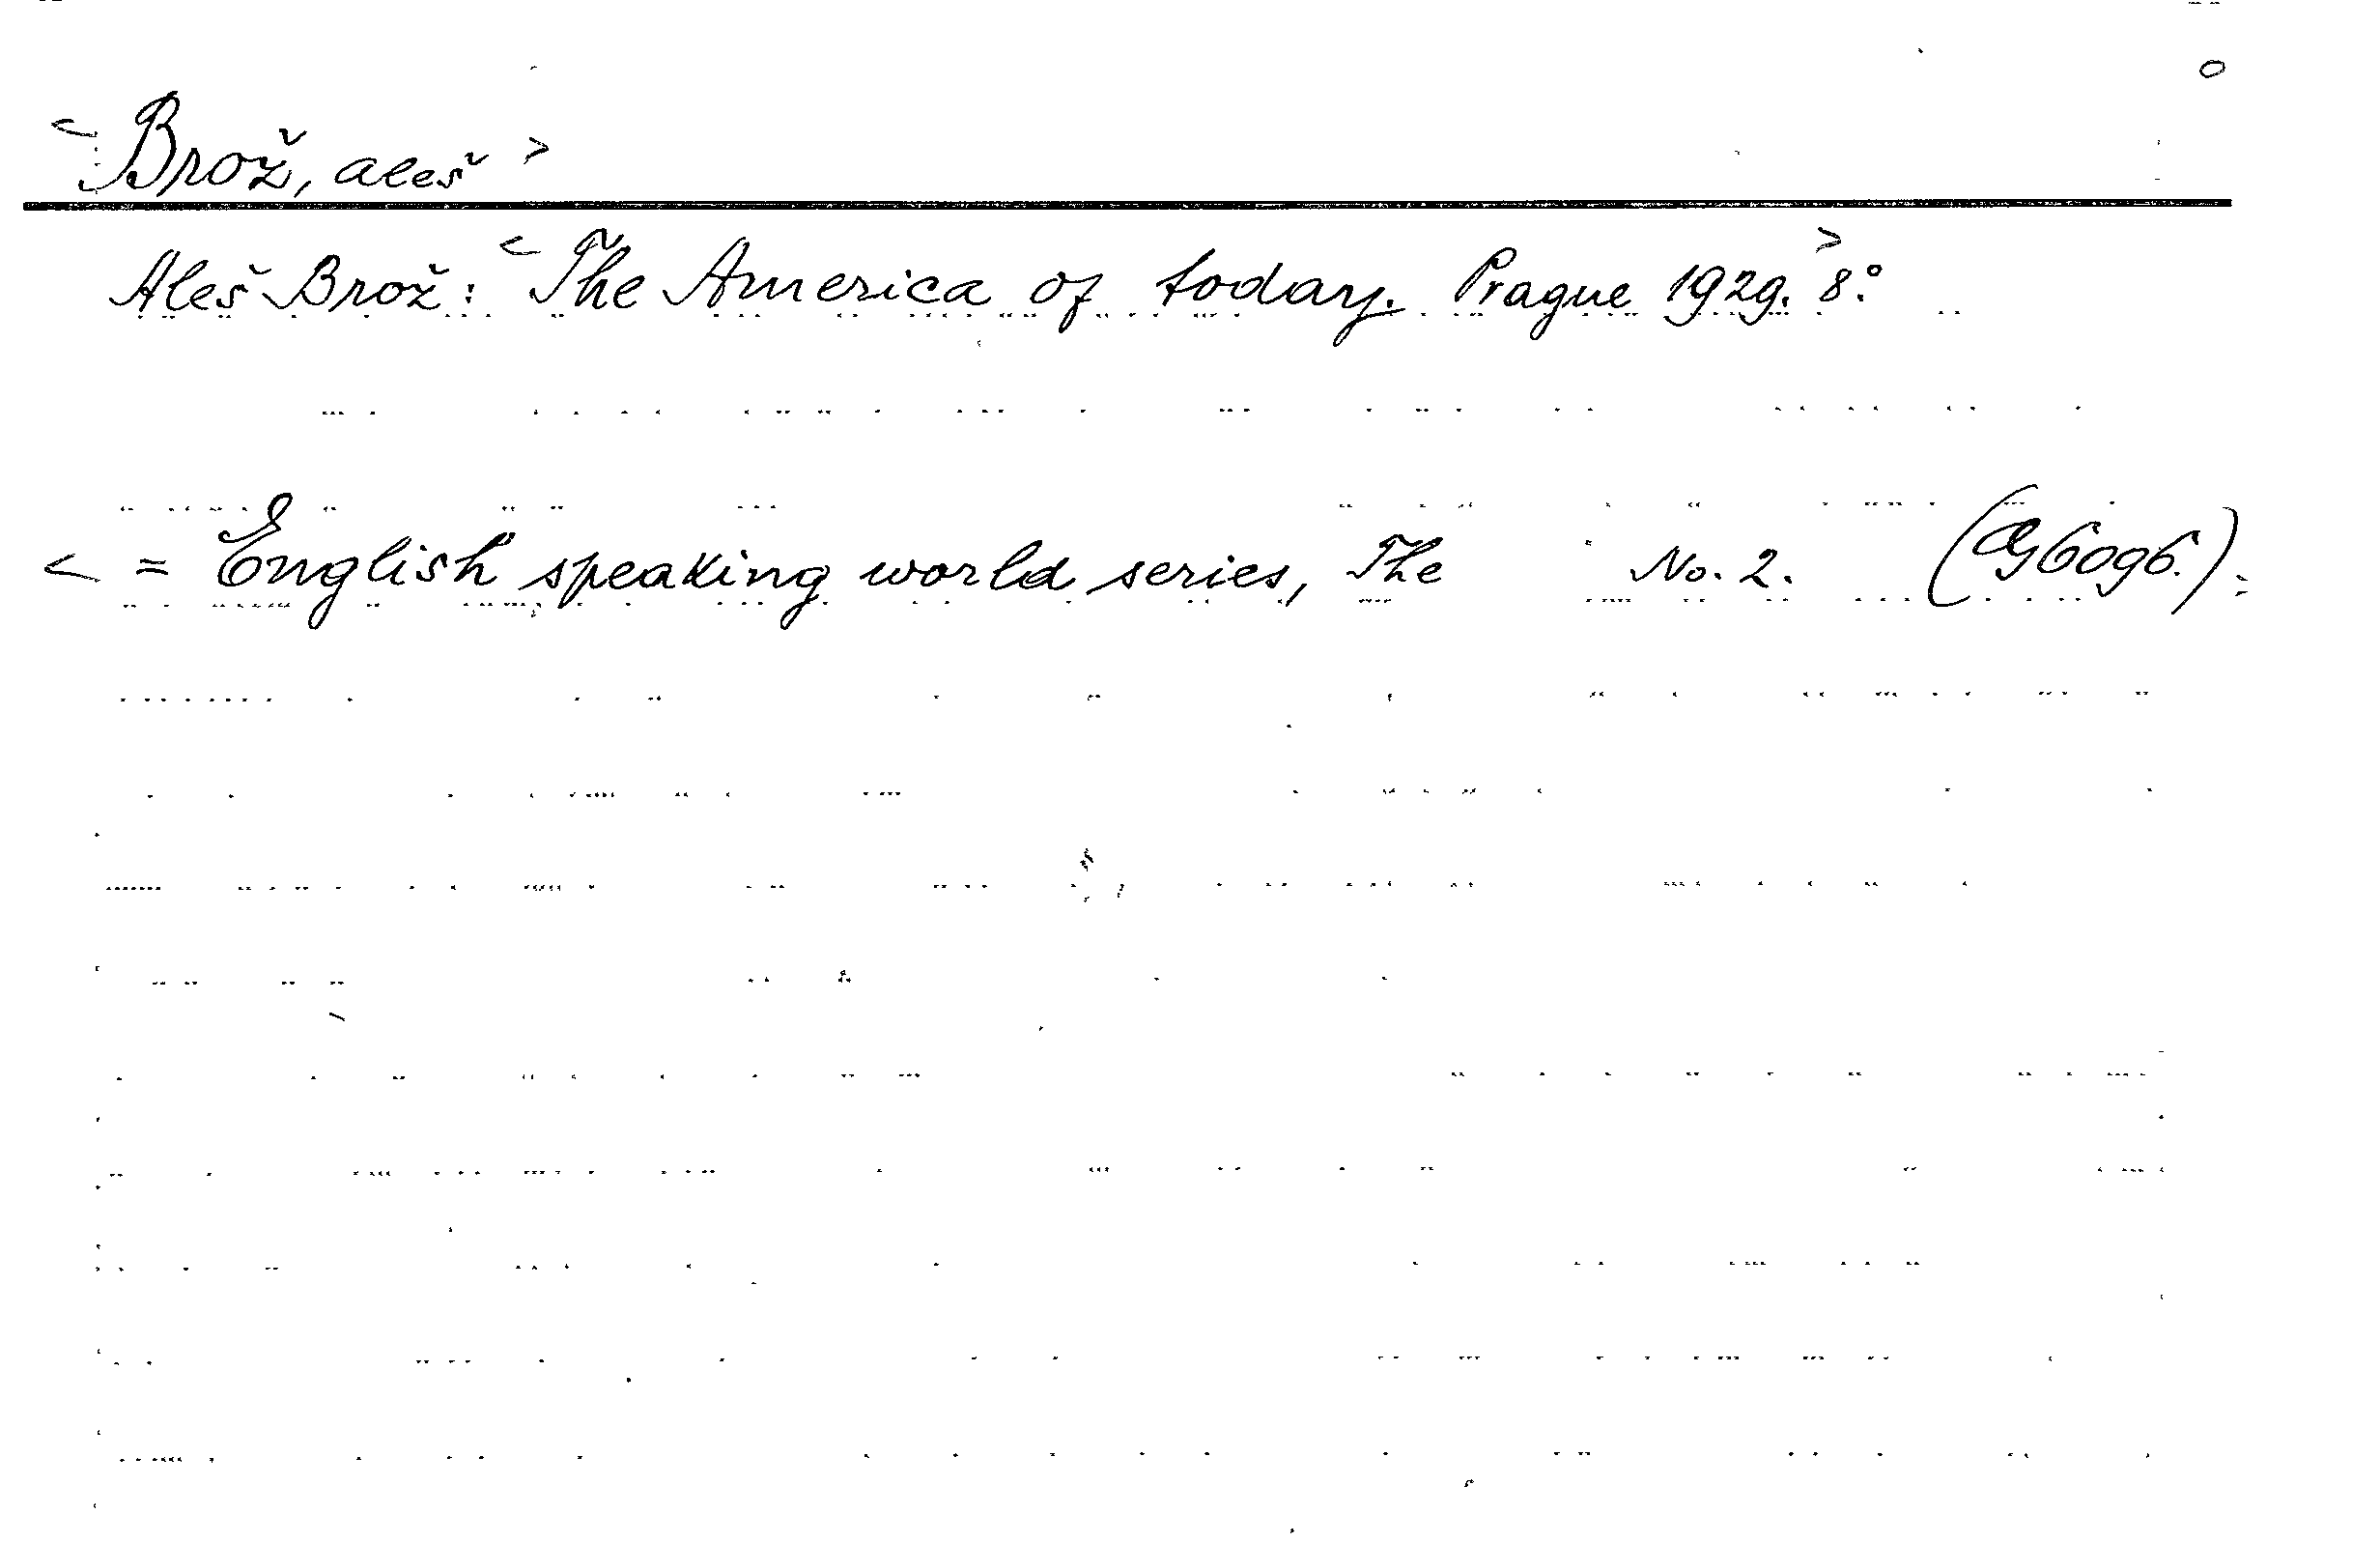 < Brož, Aleš >
Aleš Brož: < The America of today. Prague 1929. > 8.°
< = English speaking world series, The No. 2. (G 6096.) >